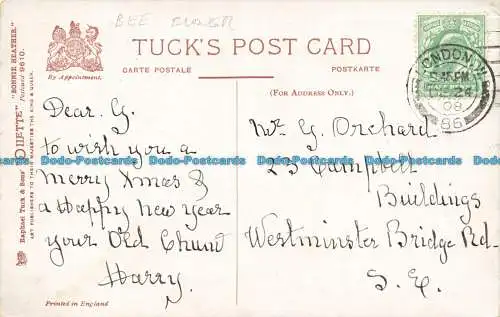 BEE
TUCK'S POST CARD
CARTE POSTALE
POSTKARTE
By Appointment.
(FOR ADDRESS ONLY.)
Raphael Tuck & Sons' "OILETTE" "BONNIE HEATHER."
Postcard 9610.
ART PUBLISHERS TO THEIR MAJESTIES THE KING & QUEEN.
LONDON. W.
5.15 PM
DE 24
08
86
Dear G.
to wish you a
Merry Xmas &
a Happy new year
your Old Chum
Harry.
Mr G. Orchard
23 Campbell
Buildings
Westminster Bridge Rd.
S. E.
Printed in England
Dodo-Postcards Dodo-Postcards Dodo-Postcards Dodo-Postcards Dodo-Postcards
Dodo-Postcards Dodo-Postcards Dodo-Postcards Dodo-Postcards Dodo-Postcards